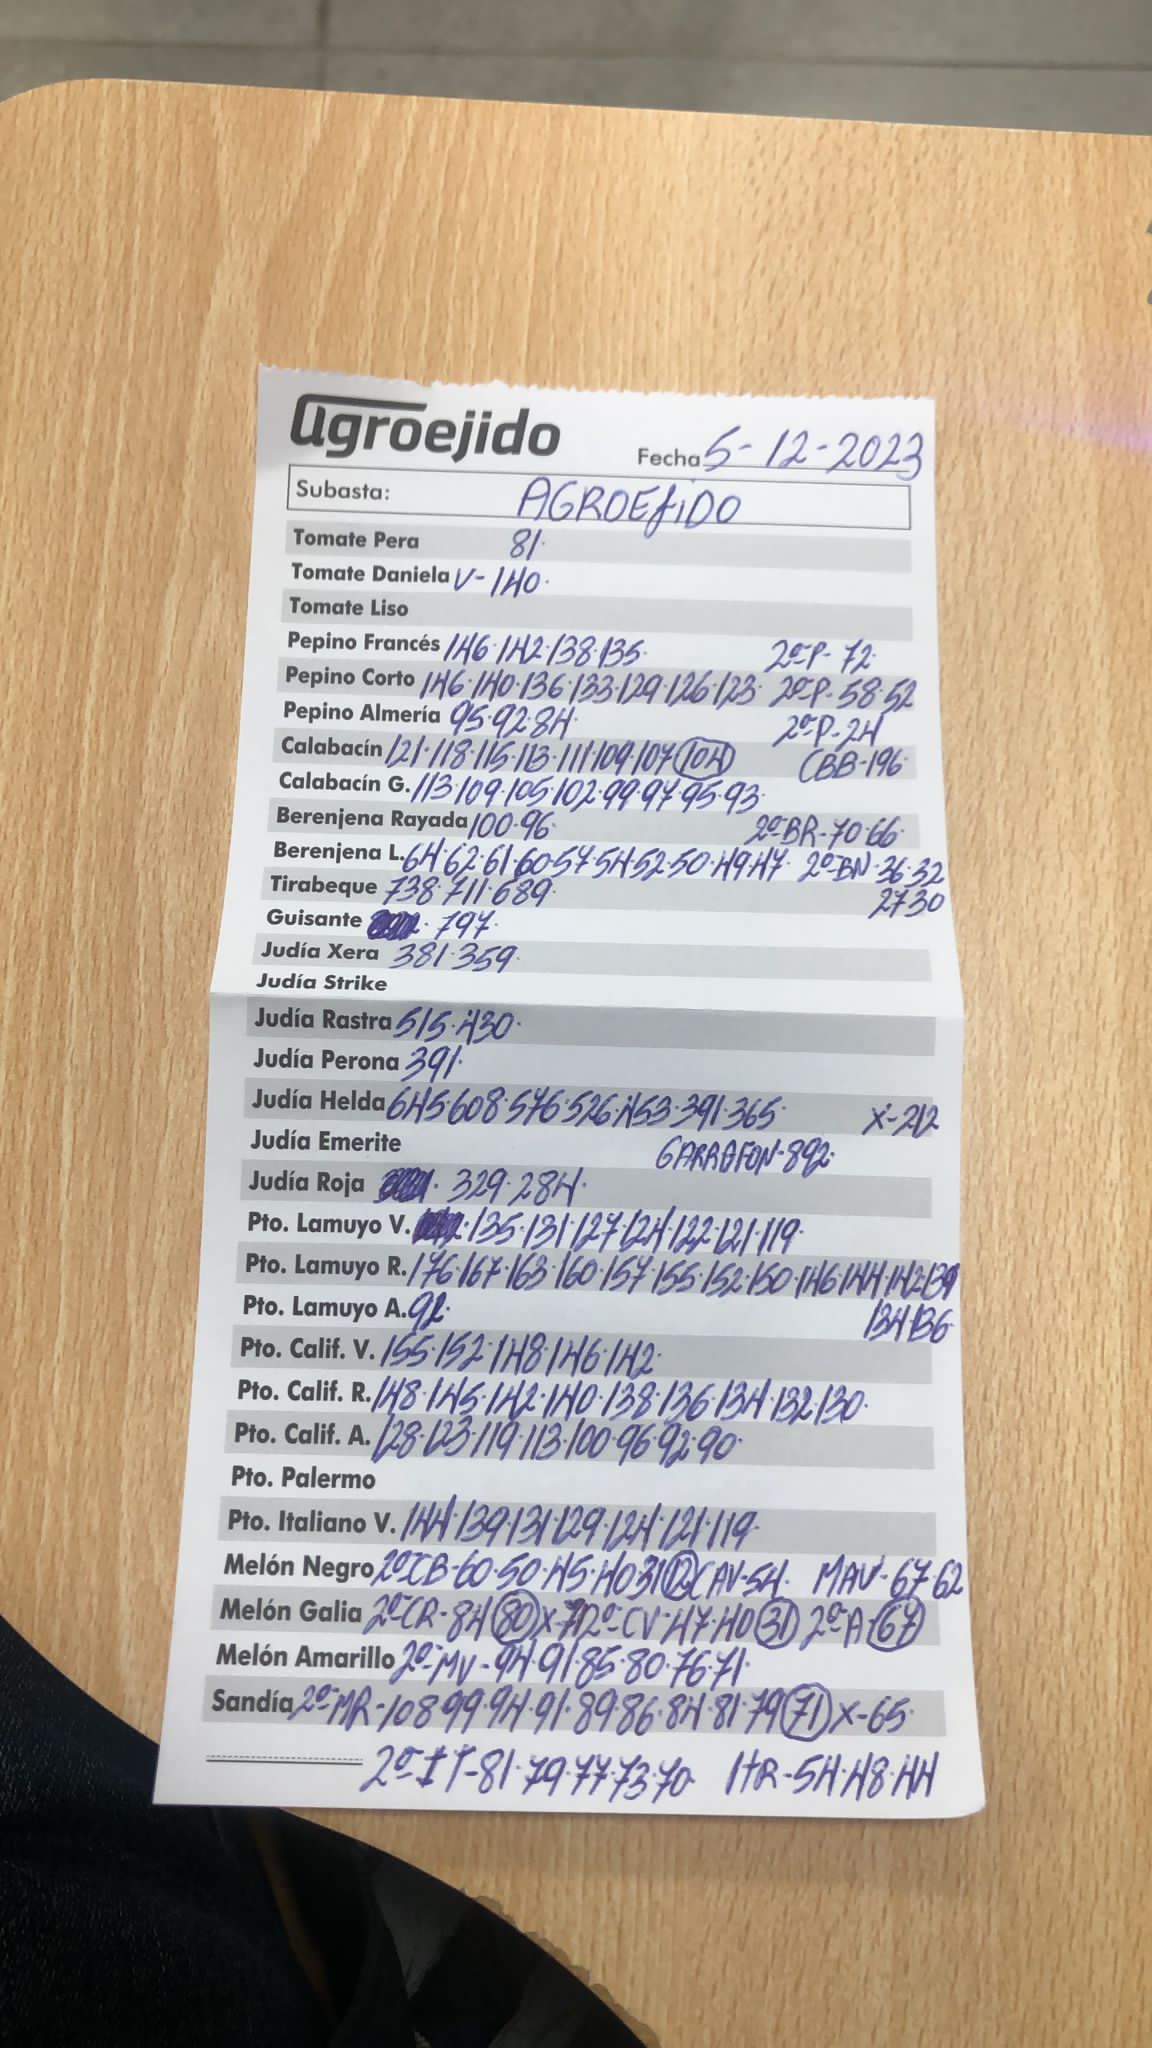 agroejido
Fecha 5-12-2023
Subasta: AGROEJIDO
Tomate Pera 81.
Tomate Daniela V-140.
Tomate Liso
Pepino Francés 146.142.138.135. 2ª P-72.
Pepino Corto 146.140.136.133.129.126.123. 2ª P-58.52
Pepino Almería 95.92.84. 2ª P-24
Calabacín 121.118.115.113.111.109.107 104 CBB-196.
Calabacín G. 113.109.105.102.99.97.95.93.
Berenjena Rayada 100.96. 2ª BR-70.66.
Berenjena L. 64.62.61.60.57.54.52.50.49.47. 2ª BN-36.32
Tirabeque 738.711.689. 27 30
Guisante 797.
Judía Xera 381.359.
Judía Strike
Judía Rastra 515.430.
Judía Perona 391.
Judía Helda 645.608.576.526.453.391.365. X-212
Judía Emerite GARRAFON-892.
Judía Roja 329.284.
Pto. Lamuyo V. 135.131.127.124.122.121.119.
Pto. Lamuyo R. 176.167.163.160.157.155.152.150.146.144.142.139
Pto. Lamuyo A. 92. 134.136.
Pto. Calif. V. 155.152.148.146.142.
Pto. Calif. R. 148.145.142.140.138.136.134.132.130.
Pto. Calif. A. 128.123.119.113.100.96.92.90.
Pto. Palermo
Pto. Italiano V. 144.139.131.129.124.121.119.
Melón Negro 2ª CB-60.50.45.40.31 12 CAV-54. MAV-67.62
Melón Galia 2ª CR-84 80 X-71 2ª CV-47.40 31 2ª A-67
Melón Amarillo 2ª MV-94.91.85.80.76.71.
Sandía 2ª MR-108.99.94.91.89.86.84.81.79 71 X-65.
2ª IT-81.79.77.73.70 ITR-54.48.44